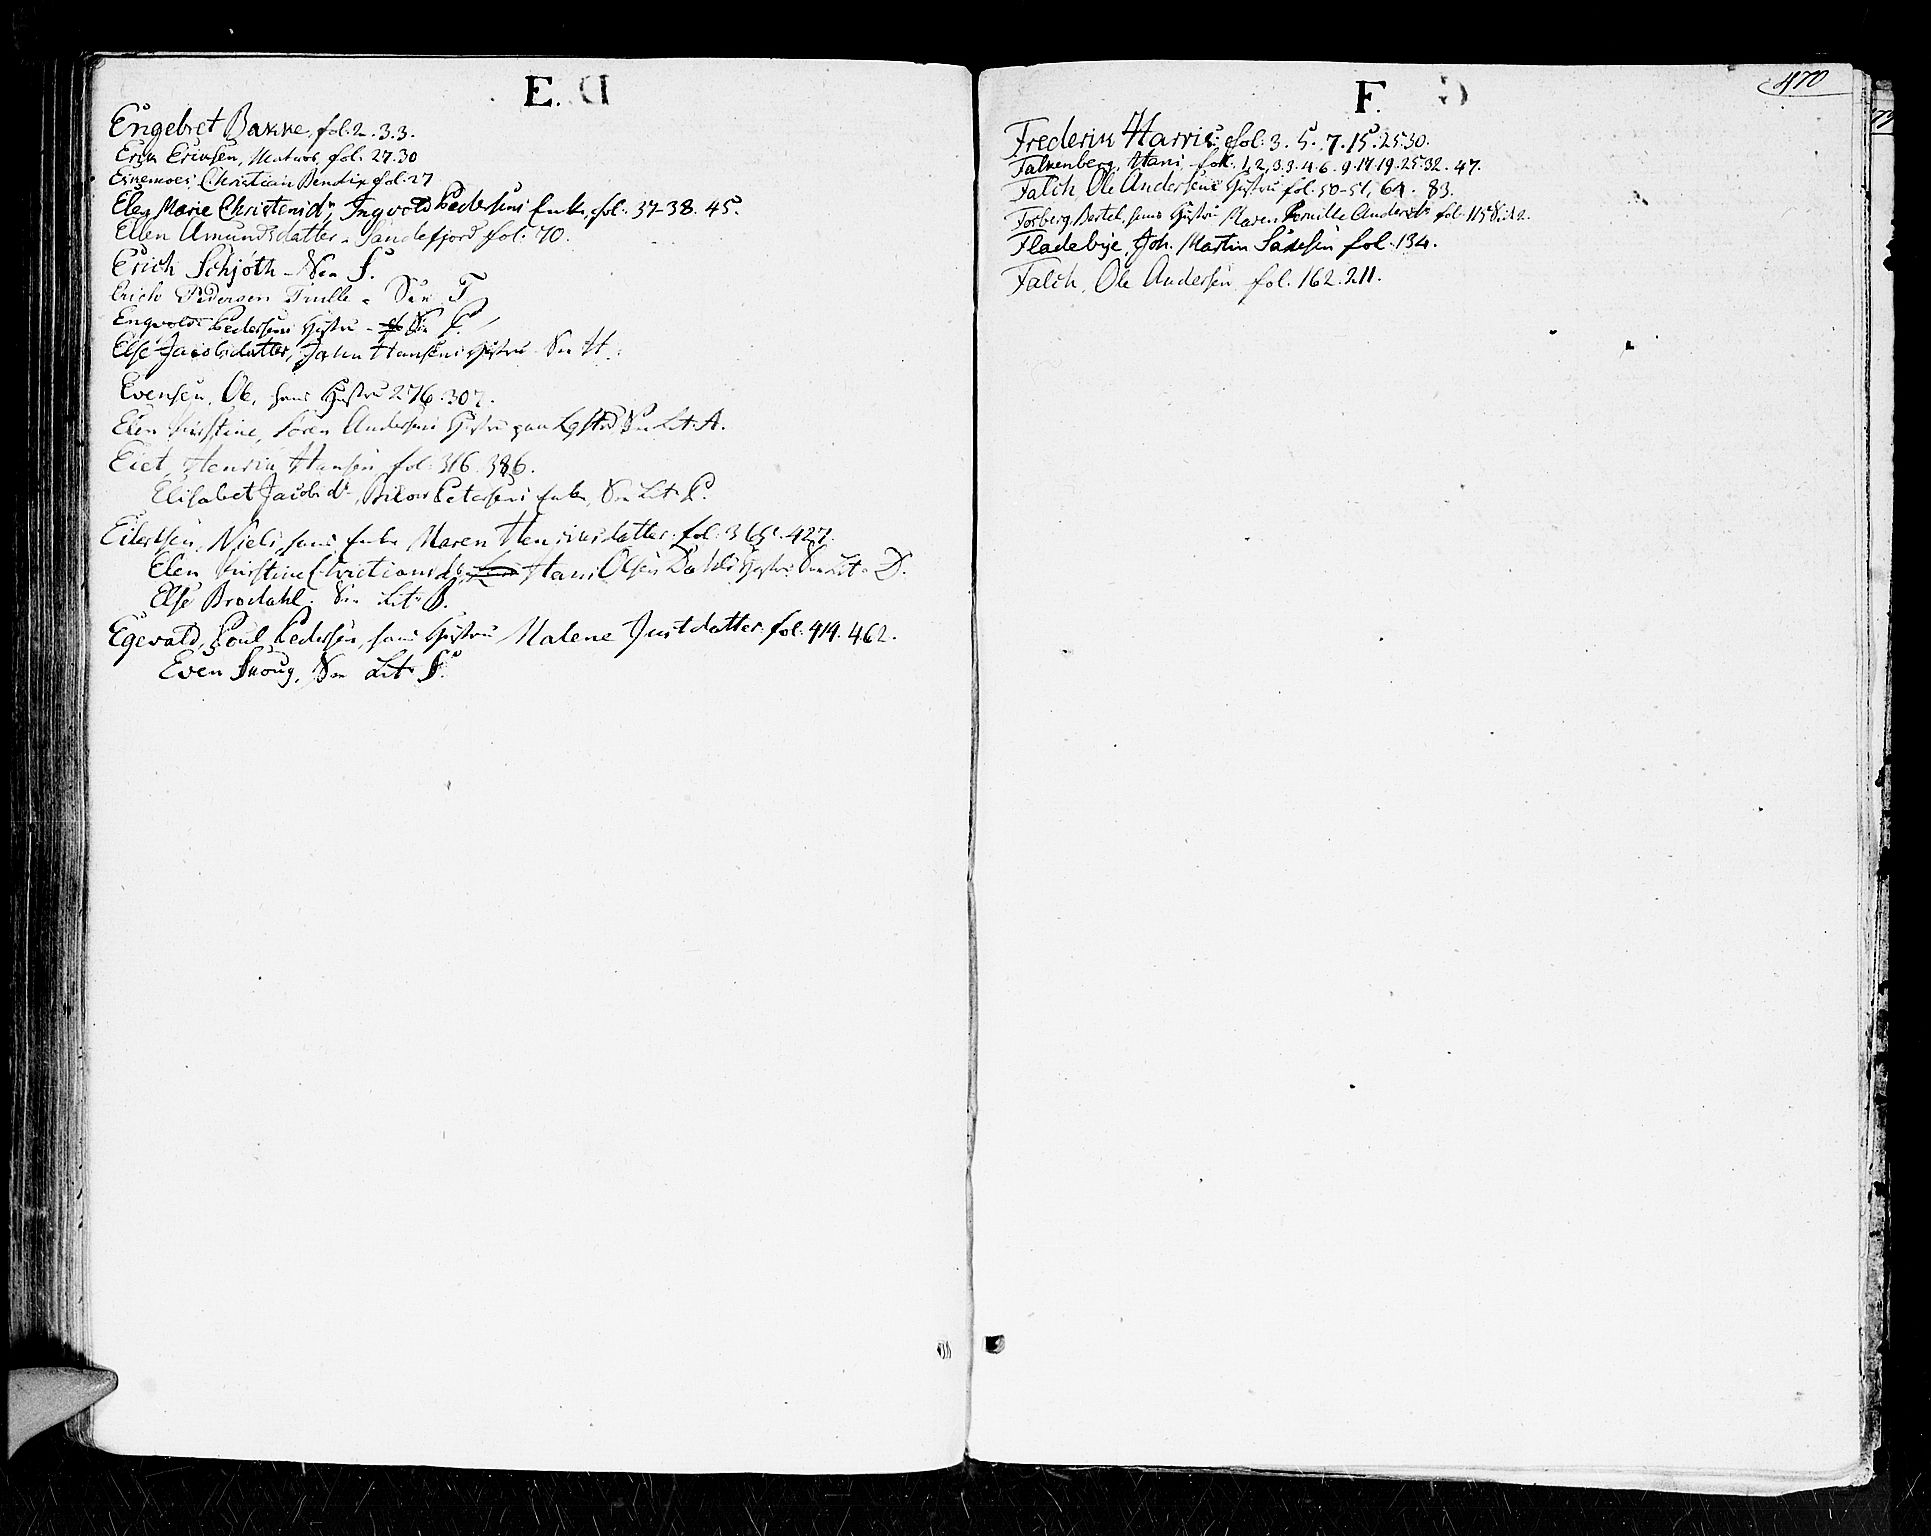 E.
Engebret Bakke, fol. 2. 3 3.
Erik Eriksen, Matros, fol. 27. 30
Christian Bendix fol. 27
Elen Marie Christensdr, Ingvold Pedersens Enke, fol. 37-38. 45.
Ellen Amundsdatter - Sandefjord fol. 70.
Erich Schjöth - See S.
Erich Pedersen Trulle - See T
Engvold Pedersens Hustru - See P.
Else Jacobsdatter, John Hansens Hustru - See H.
Evensen, Ole, hans Hustru 276. 307.
Elen Kirstine, Sören Andersens Hustru paa See Lit. A.
Eiet, Henrik Hansen, fol. 316. 386.
Elisabet Jacobsdr, Petersens Enke, See Lit. P.
Eilertsen, Niels, hans Enke Maren Henriksdatter. fol. 365. 427.
Elen Kirstine Christiansdr, Hans Olsen Dahls Hustru See Lit. D.
Else Brodahl. See Lit. B.
Egevald, Poul Pedersen, hans Hustru Malene Justdatter. fol. 414. 462.
Even Skoug, See Lit. S.
F.
470
Frederik Harris. fol. 3. 5. 7. 15. 25 30.
Falkenberg, Hans, fol. 1. 2. 3 3. 4. 6. 9. 17. 19. 25. 32. 47.
Falch Ole Andersens Hustru fol. 50-51. 64. 83.
Forberg, Bertel, hans Hustru Maren Pernille Andersdr fol. 115
Fladebye, Joh. Martin fol. 134.
Falch, Ole Andersen, fol. 162. 211.